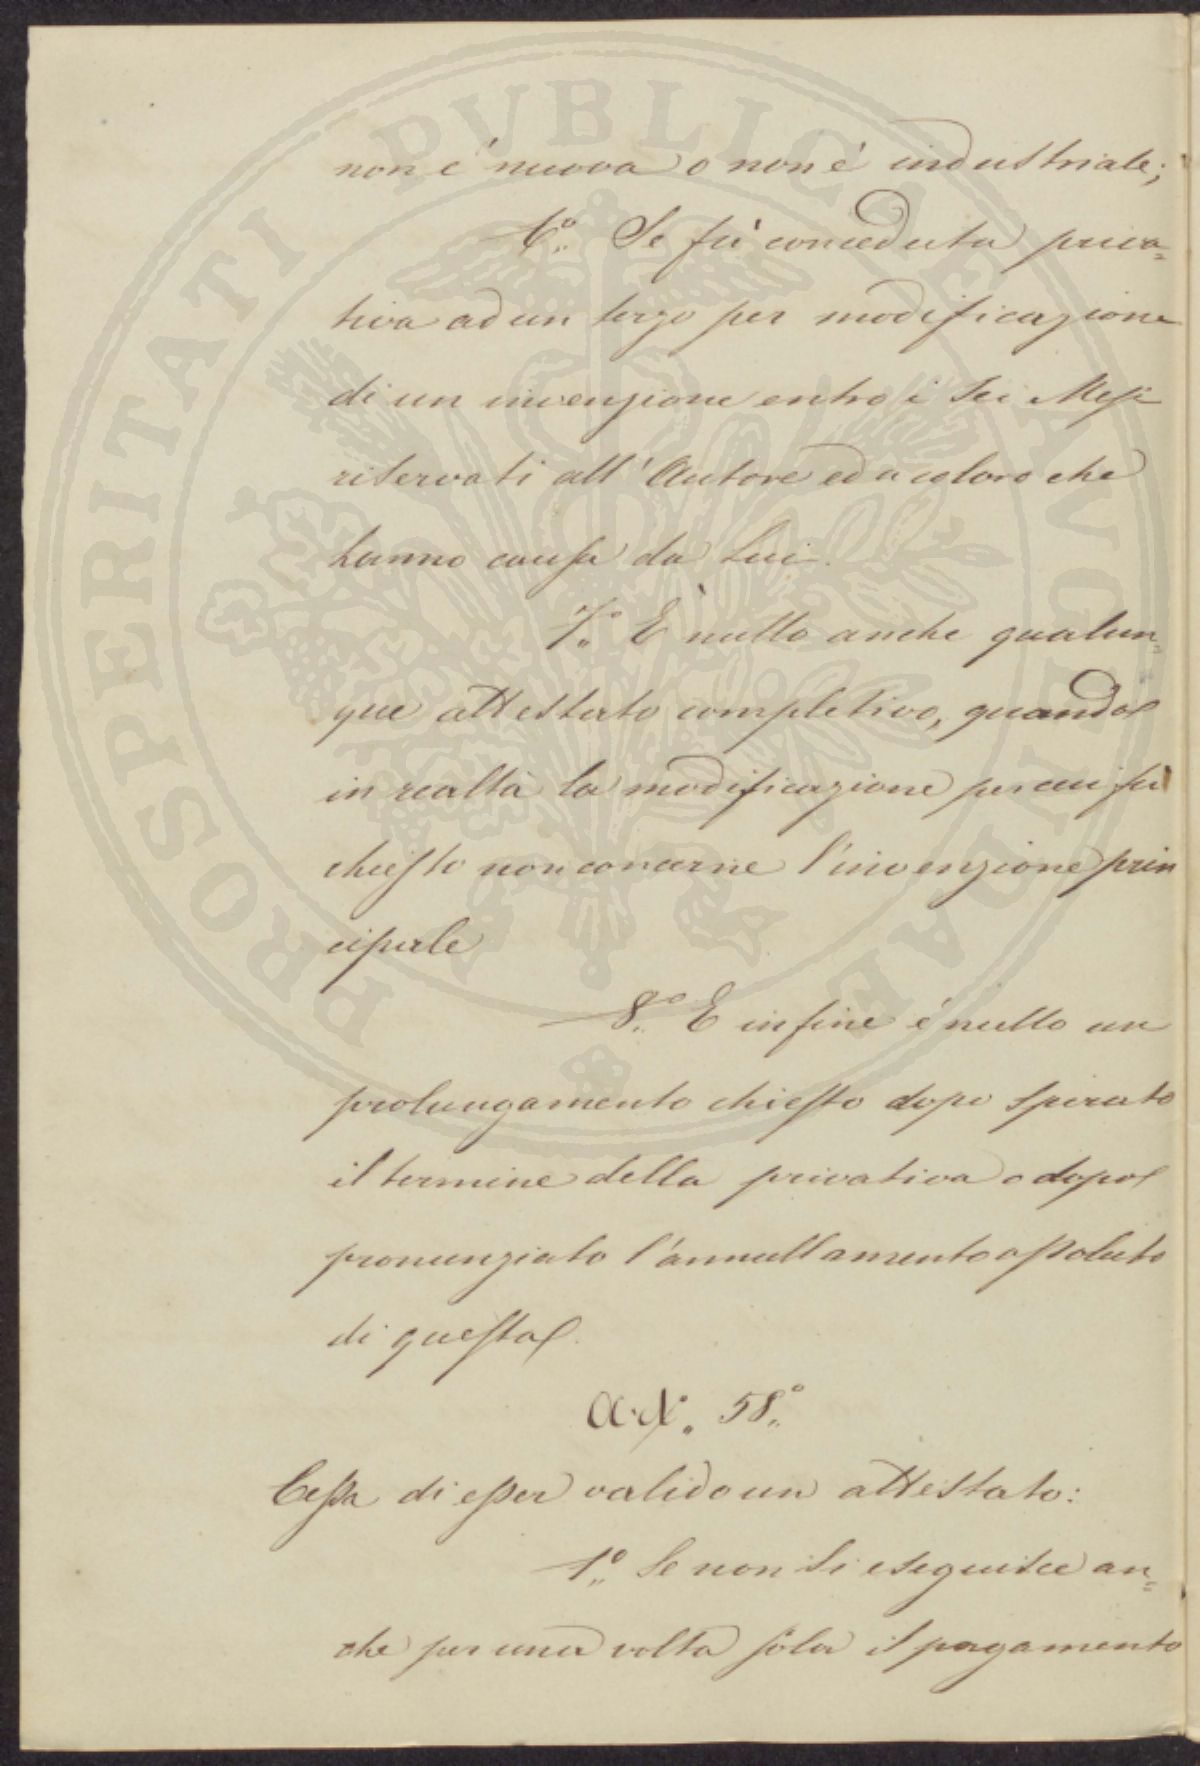 non é nuova o non é industriale;
6.° Se fù conceduta priva=
tiva ad un terzo per modificazione
di un invenzione entro i Sei Mesi
riservati all'Autore ed a coloro che
hanno causa da Lui.
7.° È nullo anche qualun=
que attestato completivo, quando
in realtà la modificazione per cui fù
chiesto non concerne l'invenzione prin
cipale
8.° E in fine é nullo un
prolungamento chiesto dopo spirato
il termine della privativa o dopo
pronunziato l'annullamento assoluto
di questa.
Art.° 58.°
Cessa di esser valido un attestato:
1.° Se non si eseguisce an=
che per una volta sola il pagamento
PROSPERITATI PVBLICAE AVGENDAE